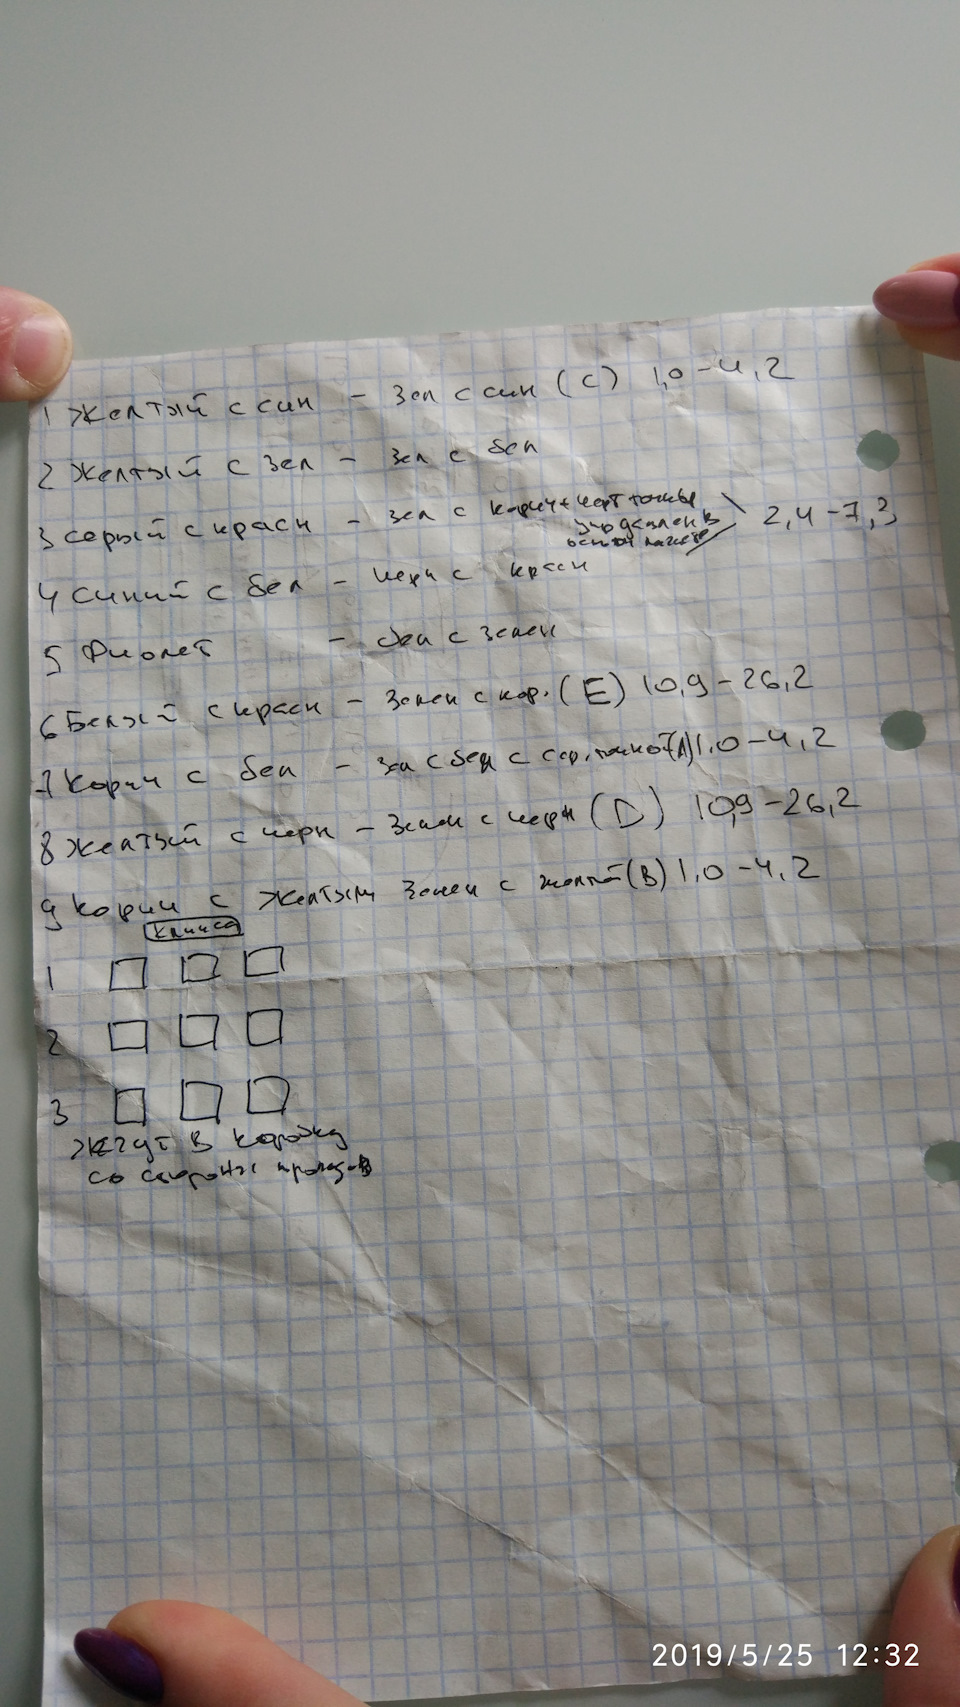 1 Желтый с син - Зел с син (С) 1,0-4,2
2 Желтый с Зел - Зел с бел
3 серый с красн - Зел с 2,4-7,3
4 Синий с бел - черн с красн
5 Фиолет - бел с зелен
6 Белый с красн - Зелен с кор. (E) 10,9-26,2
7 Корич с бел - Зел с бел с сер. (А) 1,0-4,2
8 Желтый с черн - Зелен с черн (D) 10,9-26,2
9 Корич с Желтым Зелен с желтой (В) 1,0-4,2
клипса
1
2
3
Жгут в коробку
со стороны проводов